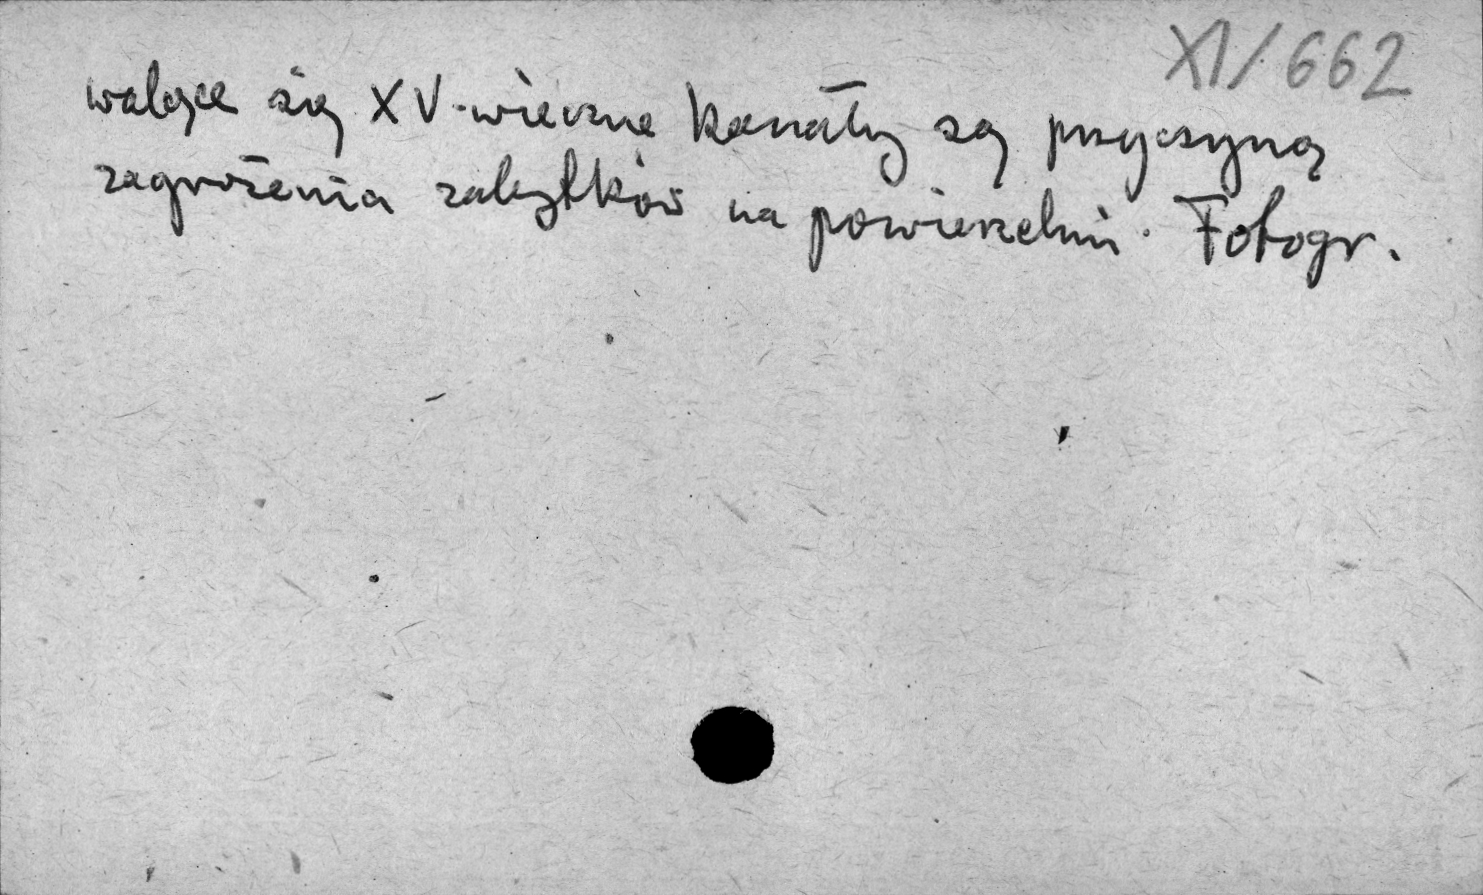 XI/662
walące się XV-wieczne kanały są przyczyną
zagrożenia zabytków na powierzchni. Fotogr.